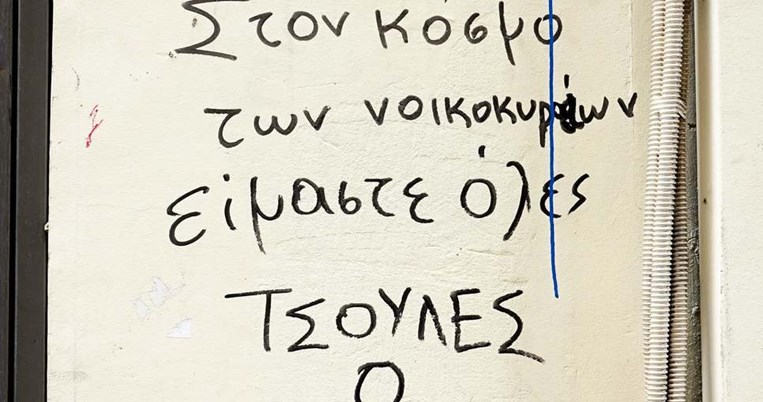 Στον κόσμο
των νοικοκυραίων
είμαστε όλες
ΤΣΟΥΛΕΣ